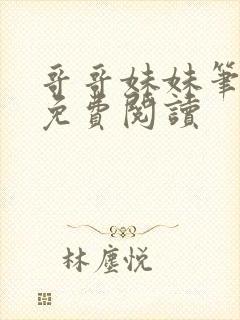 哥哥妹妹筆
免費閱讀
林塵悅